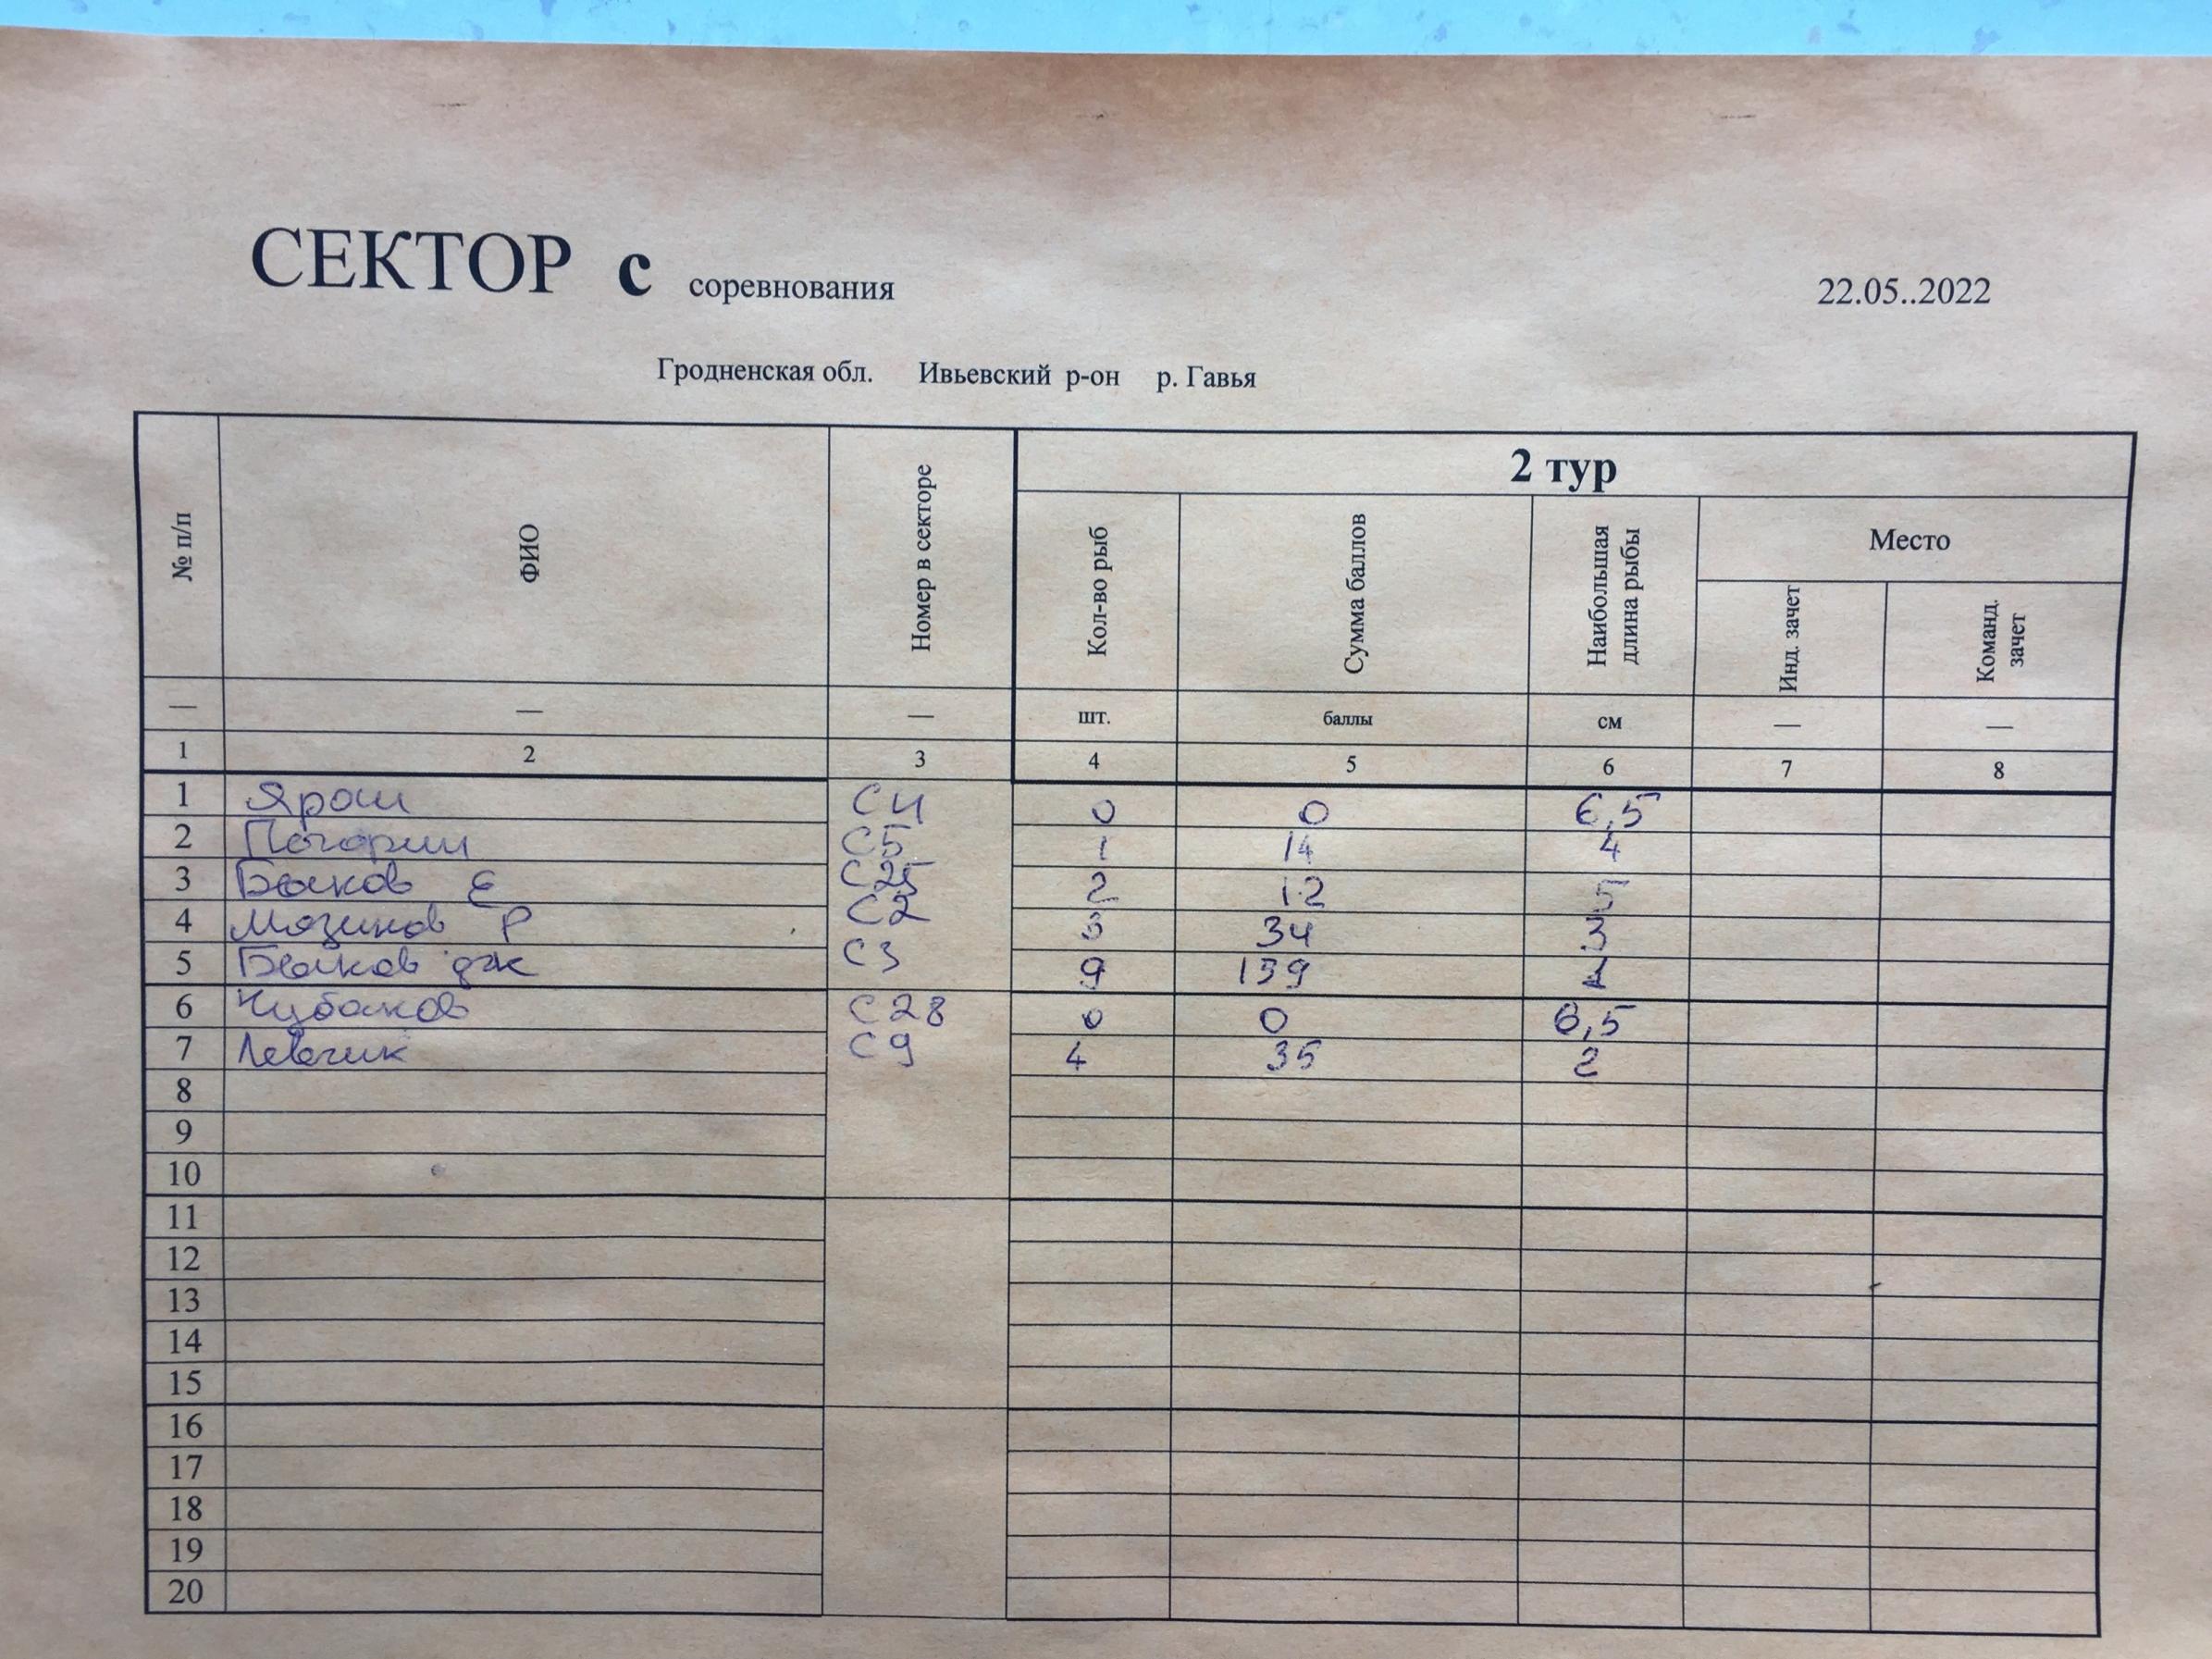 СЕКТОР с соревнования 22.05..2022
Гродненская обл. Ивьевский р-он р. Гавья
№ п/п ФИО Номер в секторе 2 тур
Кол-во рыб Сумма баллов Наибольшая длина рыбы Место
Инд. зачет Команд. зачет
— — — шт. баллы см — —
1 2 3 4 5 6 7 8
1 Ярош С4 0 0 6,5
2 С5 1 14 4
3 Быков Е С25 2 12 5
4 Р С2 3 34 3
5 Быков дж С3 9 139 1
6 Чубаков С28 0 0 6,5
7 Левчик С9 4 35 2
8
9
10
11
12
13
14
15
16
17
18
19
20